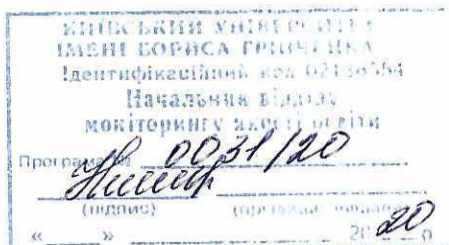 КИЇВСЬКИЙ УНІВЕРСИТЕТ
ІМЕНІ БОРИСА ГРІНЧЕНКА
Ідентифікаційний код 02136554
Начальник відділу
моніторингу якості освіти
Програма № 0031/20
(підпис) (прізвище, ініціали)
« » 2020 р.